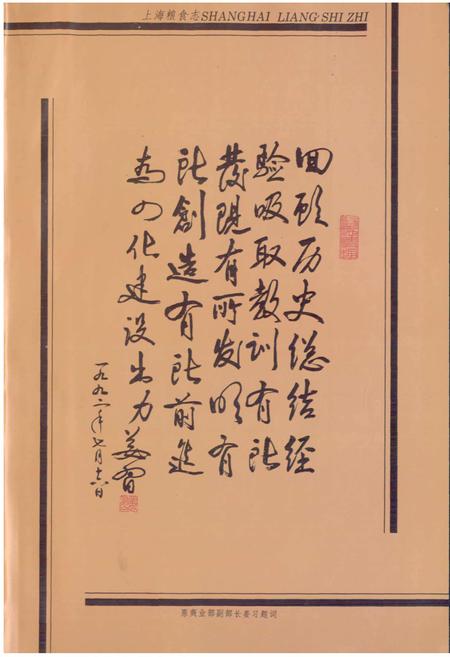 上海粮食志SHANGHAI LIANG'SHI ZHI
回顾历史总结经
验吸取教训有所
发现有所发明有
所创造有所前进
为四化建设出力姜习
一九九二年七月十六日
原商业部副部长姜习题词